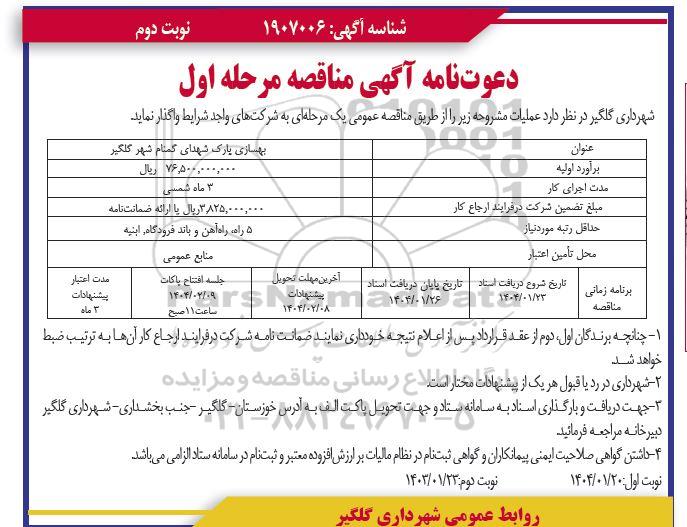 شناسه آگهی: ۱۹۰۷۰۰۶ نوبت دوم
دعوت‌نامه آگهی مناقصه مرحله اول
شهرداری گلگیر در نظر دارد عملیات مشروحه زیر را از طریق مناقصه عمومی یک مرحله‌ای به شرکت‌های واجد شرایط واگذار نماید.
عنوان بهسازی پارک شهدای گمنام شهر گلگیر
برآورد اولیه ۷۶,۵۰۰,۰۰۰,۰۰۰ ریال
مدت اجرای کار ۳ ماه شمسی
مبلغ تضمین شرکت درفرایند ارجاع کار ۳,۸۲۵,۰۰۰,۰۰۰ریال یا ارائه ضمانت‌نامه
حداقل رتبه موردنیاز ۵ راه، راه‌آهن و باند فرودگاه, ابنیه
محل تأمین اعتبار منابع عمومی
برنامه زمانی مناقصه
تاریخ شروع دریافت اسناد ۱۴۰۴/۰۱/۲۳
تاریخ پایان دریافت اسناد ۱۴۰۴/۰۱/۲۶
آخرین‌مهلت تحویل پیشنهادات ۱۴۰۴/۰۲/۰۸
جلسه افتتاح پاکات ۱۴۰۴/۰۲/۰۹ ساعت۱۱صبح
مدت اعتبار پیشنهادات ۳ ماه
۱- چنانچه برندگان اول، دوم از عقد قرارداد پس از اعلام نتیجه خودداری نمایند ضمانت نامه شرکت درفرایند ارجاع کار آن‌ها به ترتیب ضبط
خواهد شد.
۲-شهرداری در رد یا قبول هر یک از پیشنهادات مختار است.
۳-جهت دریافت و بارگذاری اسناد به سامانه ستاد و جهت تحویل پاکت الف به آدرس خوزستان- گلگیر -جنب بخشداری- شهرداری گلگیر
دبیرخانه مراجعه فرمائید.
۴-داشتن گواهی صلاحیت ایمنی پیمانکاران و گواهی ثبت‌نام در نظام مالیات بر ارزش‌افزوده معتبر و ثبت‌نام در سامانه ستاد الزامی می‌باشد.
نوبت اول:۱۴۰۴/۰۱/۲۰ نوبت دوم:۱۴۰۳/۰۱/۲۳
روابط عمومی شهرداری گلگیر
پایگاه اطلاع رسانی مناقصه و مزایده
۰۲۱-۸۸۳۴۹۶۷۰-۵